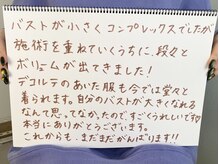 バストが小さくコンプレックスでしたが
施術を重ねていくうちに、段々と
ボリュームが出てきました!
デコルテのあいた服も今では堂々と
着られます。自分のバストが大きくなれる
なんて思ってなかったので、すごくうれしいです
本当にありがとうございます。
これからも、まだまだがんばります!!